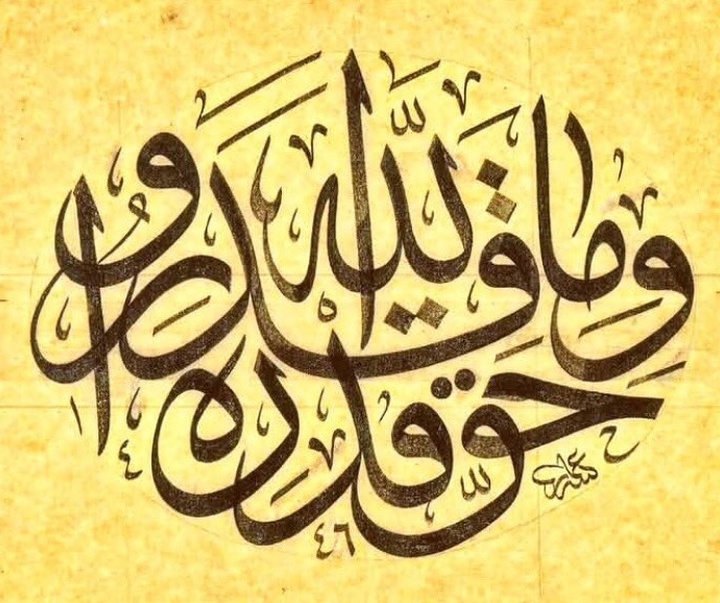 وَمَا قَدَرُوا اللَّهَ
حَقَّ قَدْرِهِ